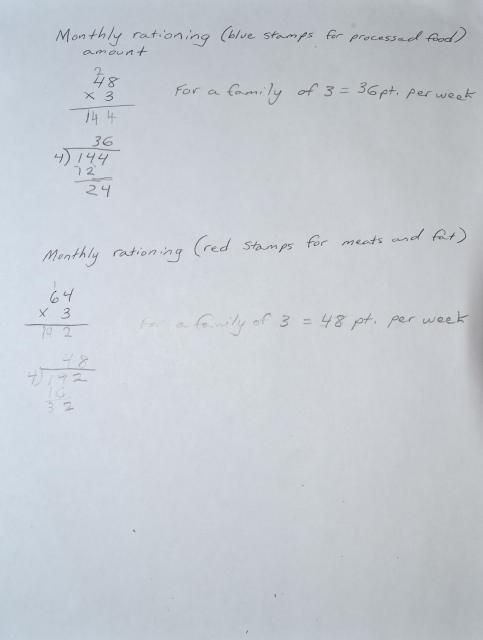 Monthly rationing (blue stamps for processed food)
amount
2
48
x 3
144
For a family of 3 = 36pt. per week
36
4)144
12
24
Monthly rationing (red stamps for meats and fat)
1
64
x 3
192
For a family of 3 = 48 pt. per week
48
4)192
16
32